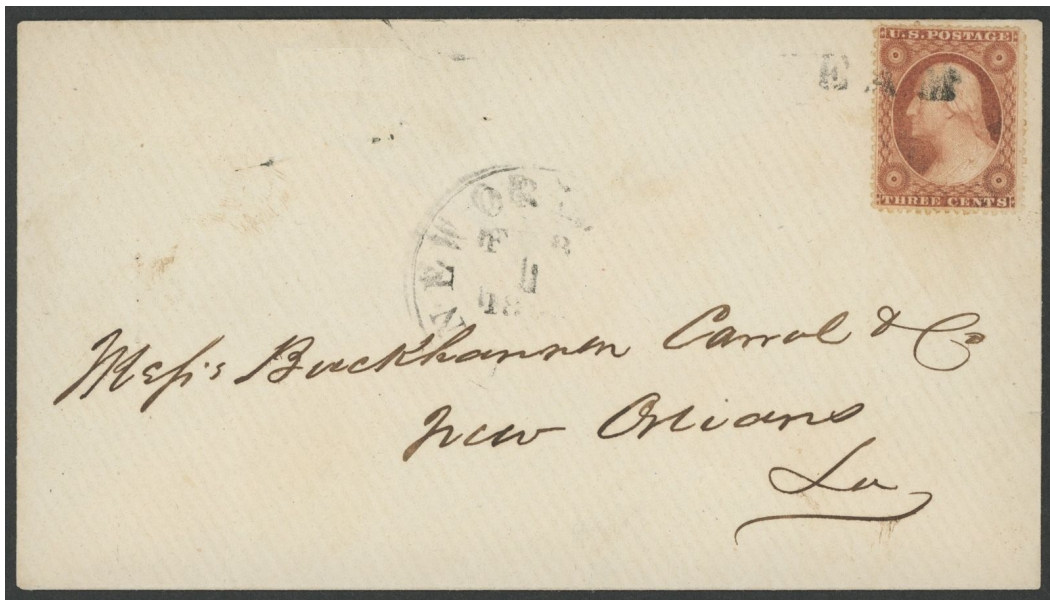 U.S. POSTAGE
THREE CENTS
NEW ORL
Messrs Buckhannon Carrol & Co
New Orleans
La